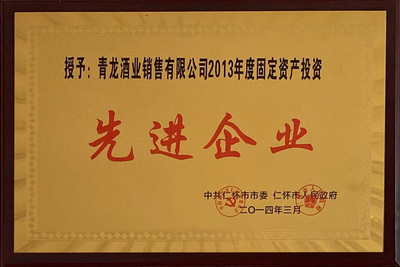 授予：青龙酒业销售有限公司2013年度固定资产投资
先进企业
中共仁怀市市委 仁怀市人民政府
二〇一四年三月